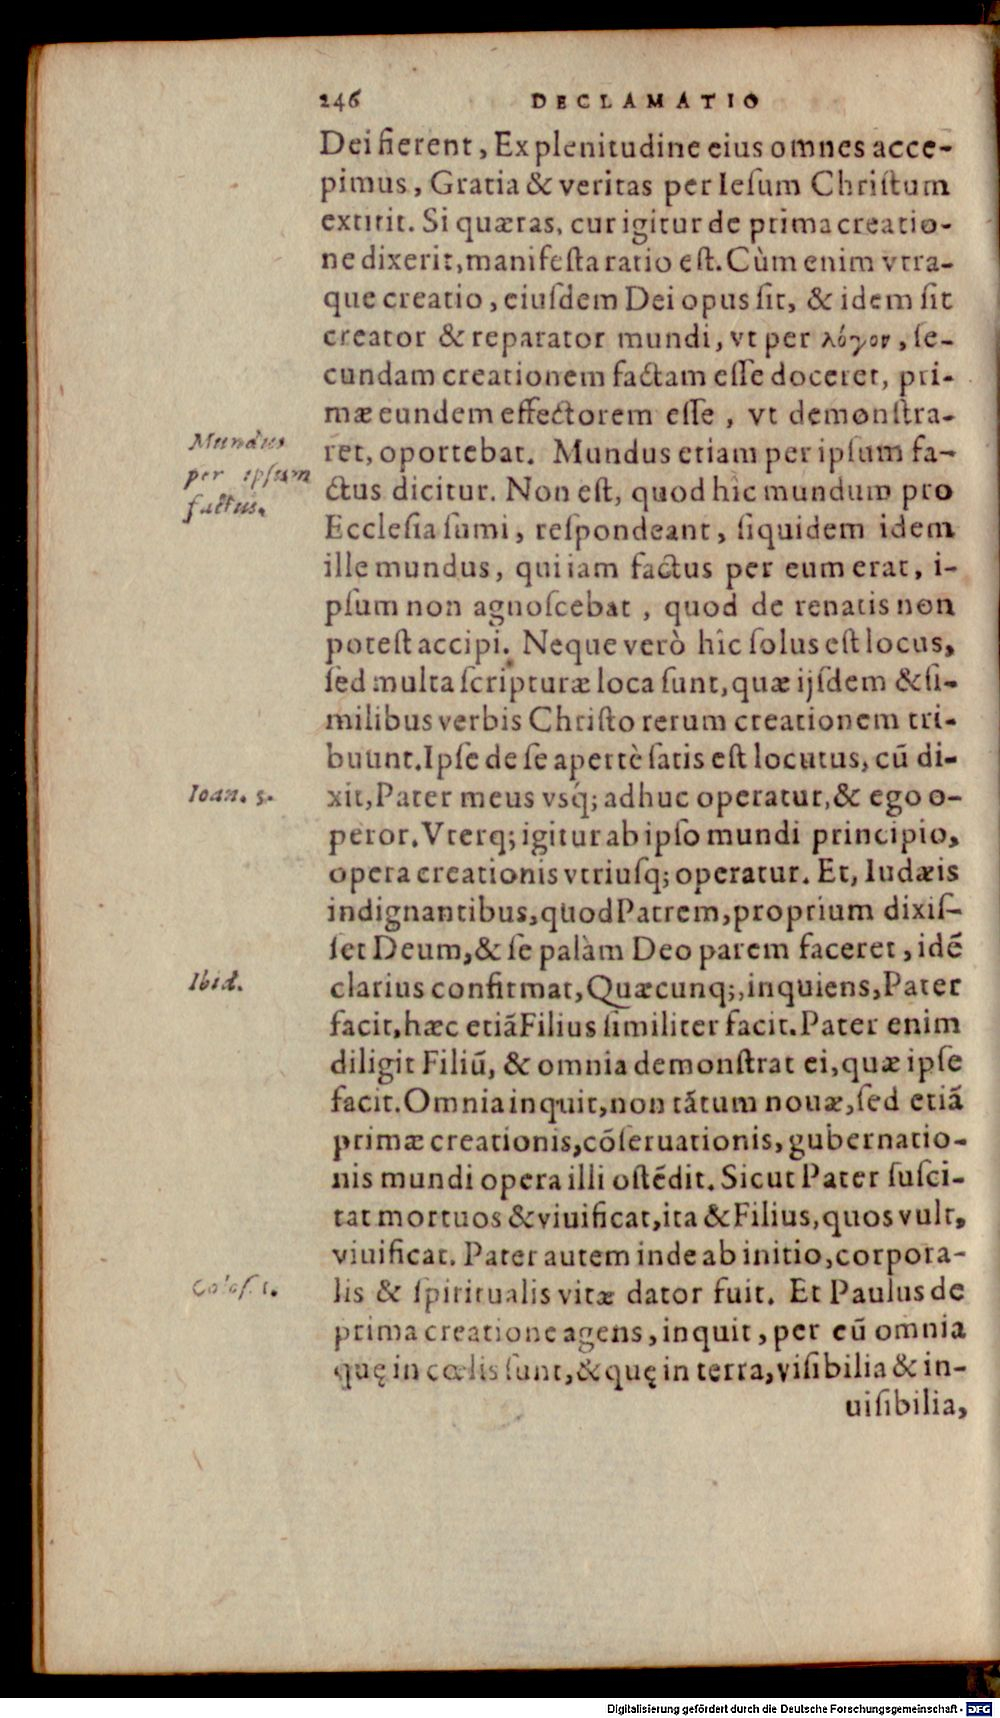 246 DECLAMATIO
Dei fierent, Ex plenitudine eius omnes acce-
pimus, Gratia & veritas per Iesum Christum
extitit. Si quæras, cur igitur de prima creatio-
ne dixerit, manifesta ratio est. Cùm enim vtra-
que creatio, eiusdem Dei opus sit, & idem sit
creator & reparator mundi, vt per λόγον, se-
cundam creationem factam esse doceret, pri-
mæ eundem effectorem esse, vt demonstra-
ret, oportebat. Mundus etiam per ipsum fa-
Mundus
per ipsum
factus.
ctus dicitur. Non est, quod hîc mundum pro
Ecclesia sumi, respondeant, siquidem idem
ille mundus, qui iam factus per eum erat, i-
psum non agnoscebat, quod de renatis non
potest accipi. Neque verò hîc solus est locus,
sed multa scripturæ loca sunt, quæ ijsdem & si-
milibus verbis Christo rerum creationem tri-
buunt. Ipse de se apertè satis est locutus, cũ di-
Ioan. 5.
xit, Pater meus vsq́; adhuc operatur, & ego o-
peror. Vterq; igitur ab ipso mundi principio,
opera creationis vtriusq; operatur. Et, Iudæis
indignantibus, quod Patrem, proprium dixis-
set Deum, & se palàm Deo parem faceret, idẽ
Ibid.
clarius confirmat, Quæcunq;, inquiens, Pater
facit, hæc etiã Filius similiter facit. Pater enim
diligit Filiũ, & omnia demonstrat ei, quæ ipse
facit. Omnia inquit, non tãtum nouæ, sed etiã
primæ creationis, cõseruationis, gubernatio-
nis mundi opera illi ostẽdit. Sicut Pater susci-
tat mortuos & viuificat, ita & Filius, quos vult,
viuificat. Pater autem inde ab initio, corpora-
Colos. 1.
lis & spiritualis vitæ dator fuit. Et Paulus de
prima creatione agens, inquit, per eũ omnia
quę in cœlis sunt, & quę in terra, visibilia & in-
uisibilia,
Digitalisierung gefördert durch die Deutsche Forschungsgemeinschaft - DFG